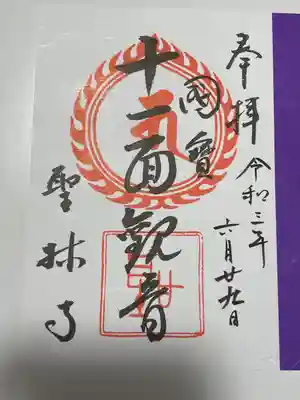 奉拝 令和三年
六月廿九日
國寶
十一面観音
聖林寺